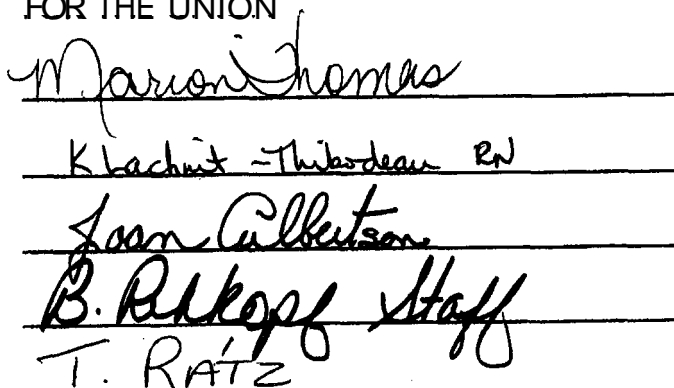 FOR THE UNION
Marion Thomas
K Lachnit - Thibodeau RN
Joan Culbertson
B. Staff
T. RATZ